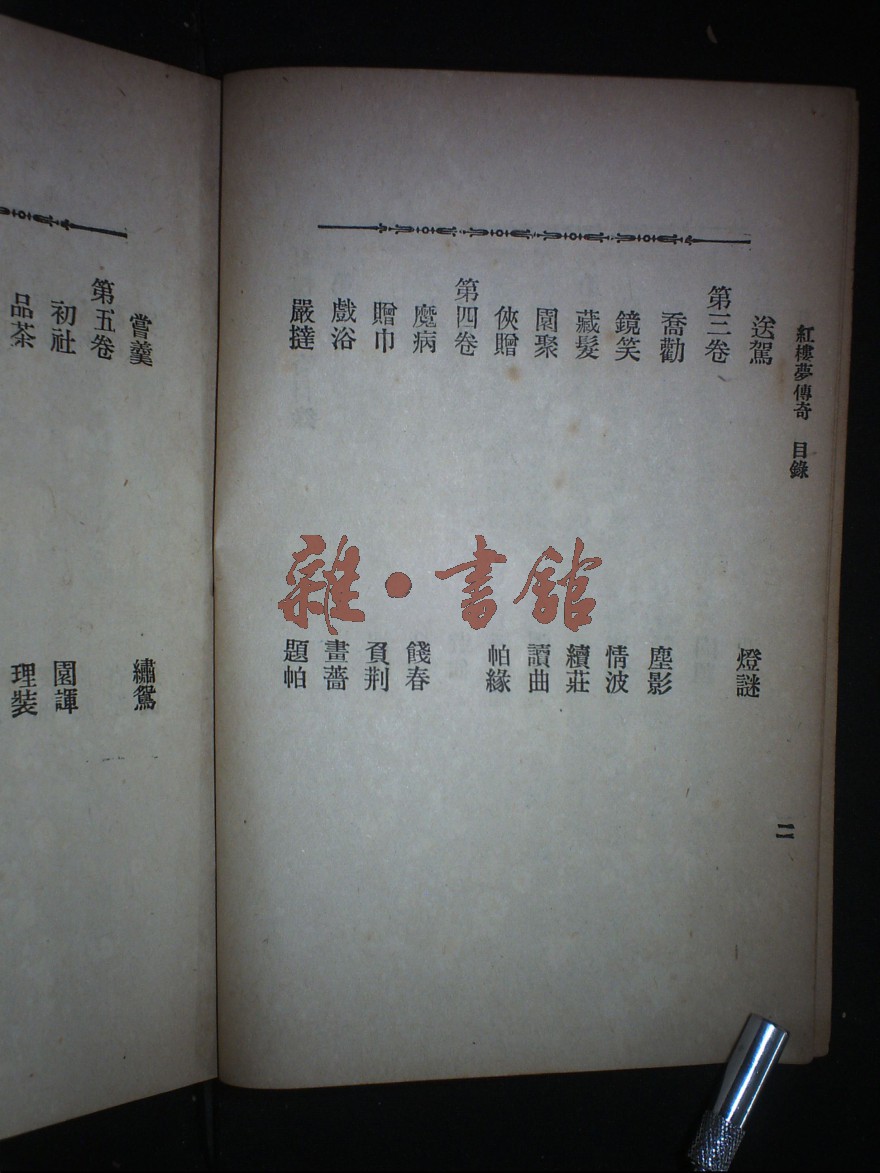 紅樓夢傳奇 目錄
二
送駕 燈謎
第三卷
喬勸 塵影
鏡笑 情波
藏髮 續莊
園聚 讀曲
俠贈 帕緣
第四卷
魔病 餞春
贈巾 負荆
戲浴 畫薔
嚴撻 題帕
嘗羹 繡鴛
第五卷
初社 園諢
品茶 理裝
雜·書館